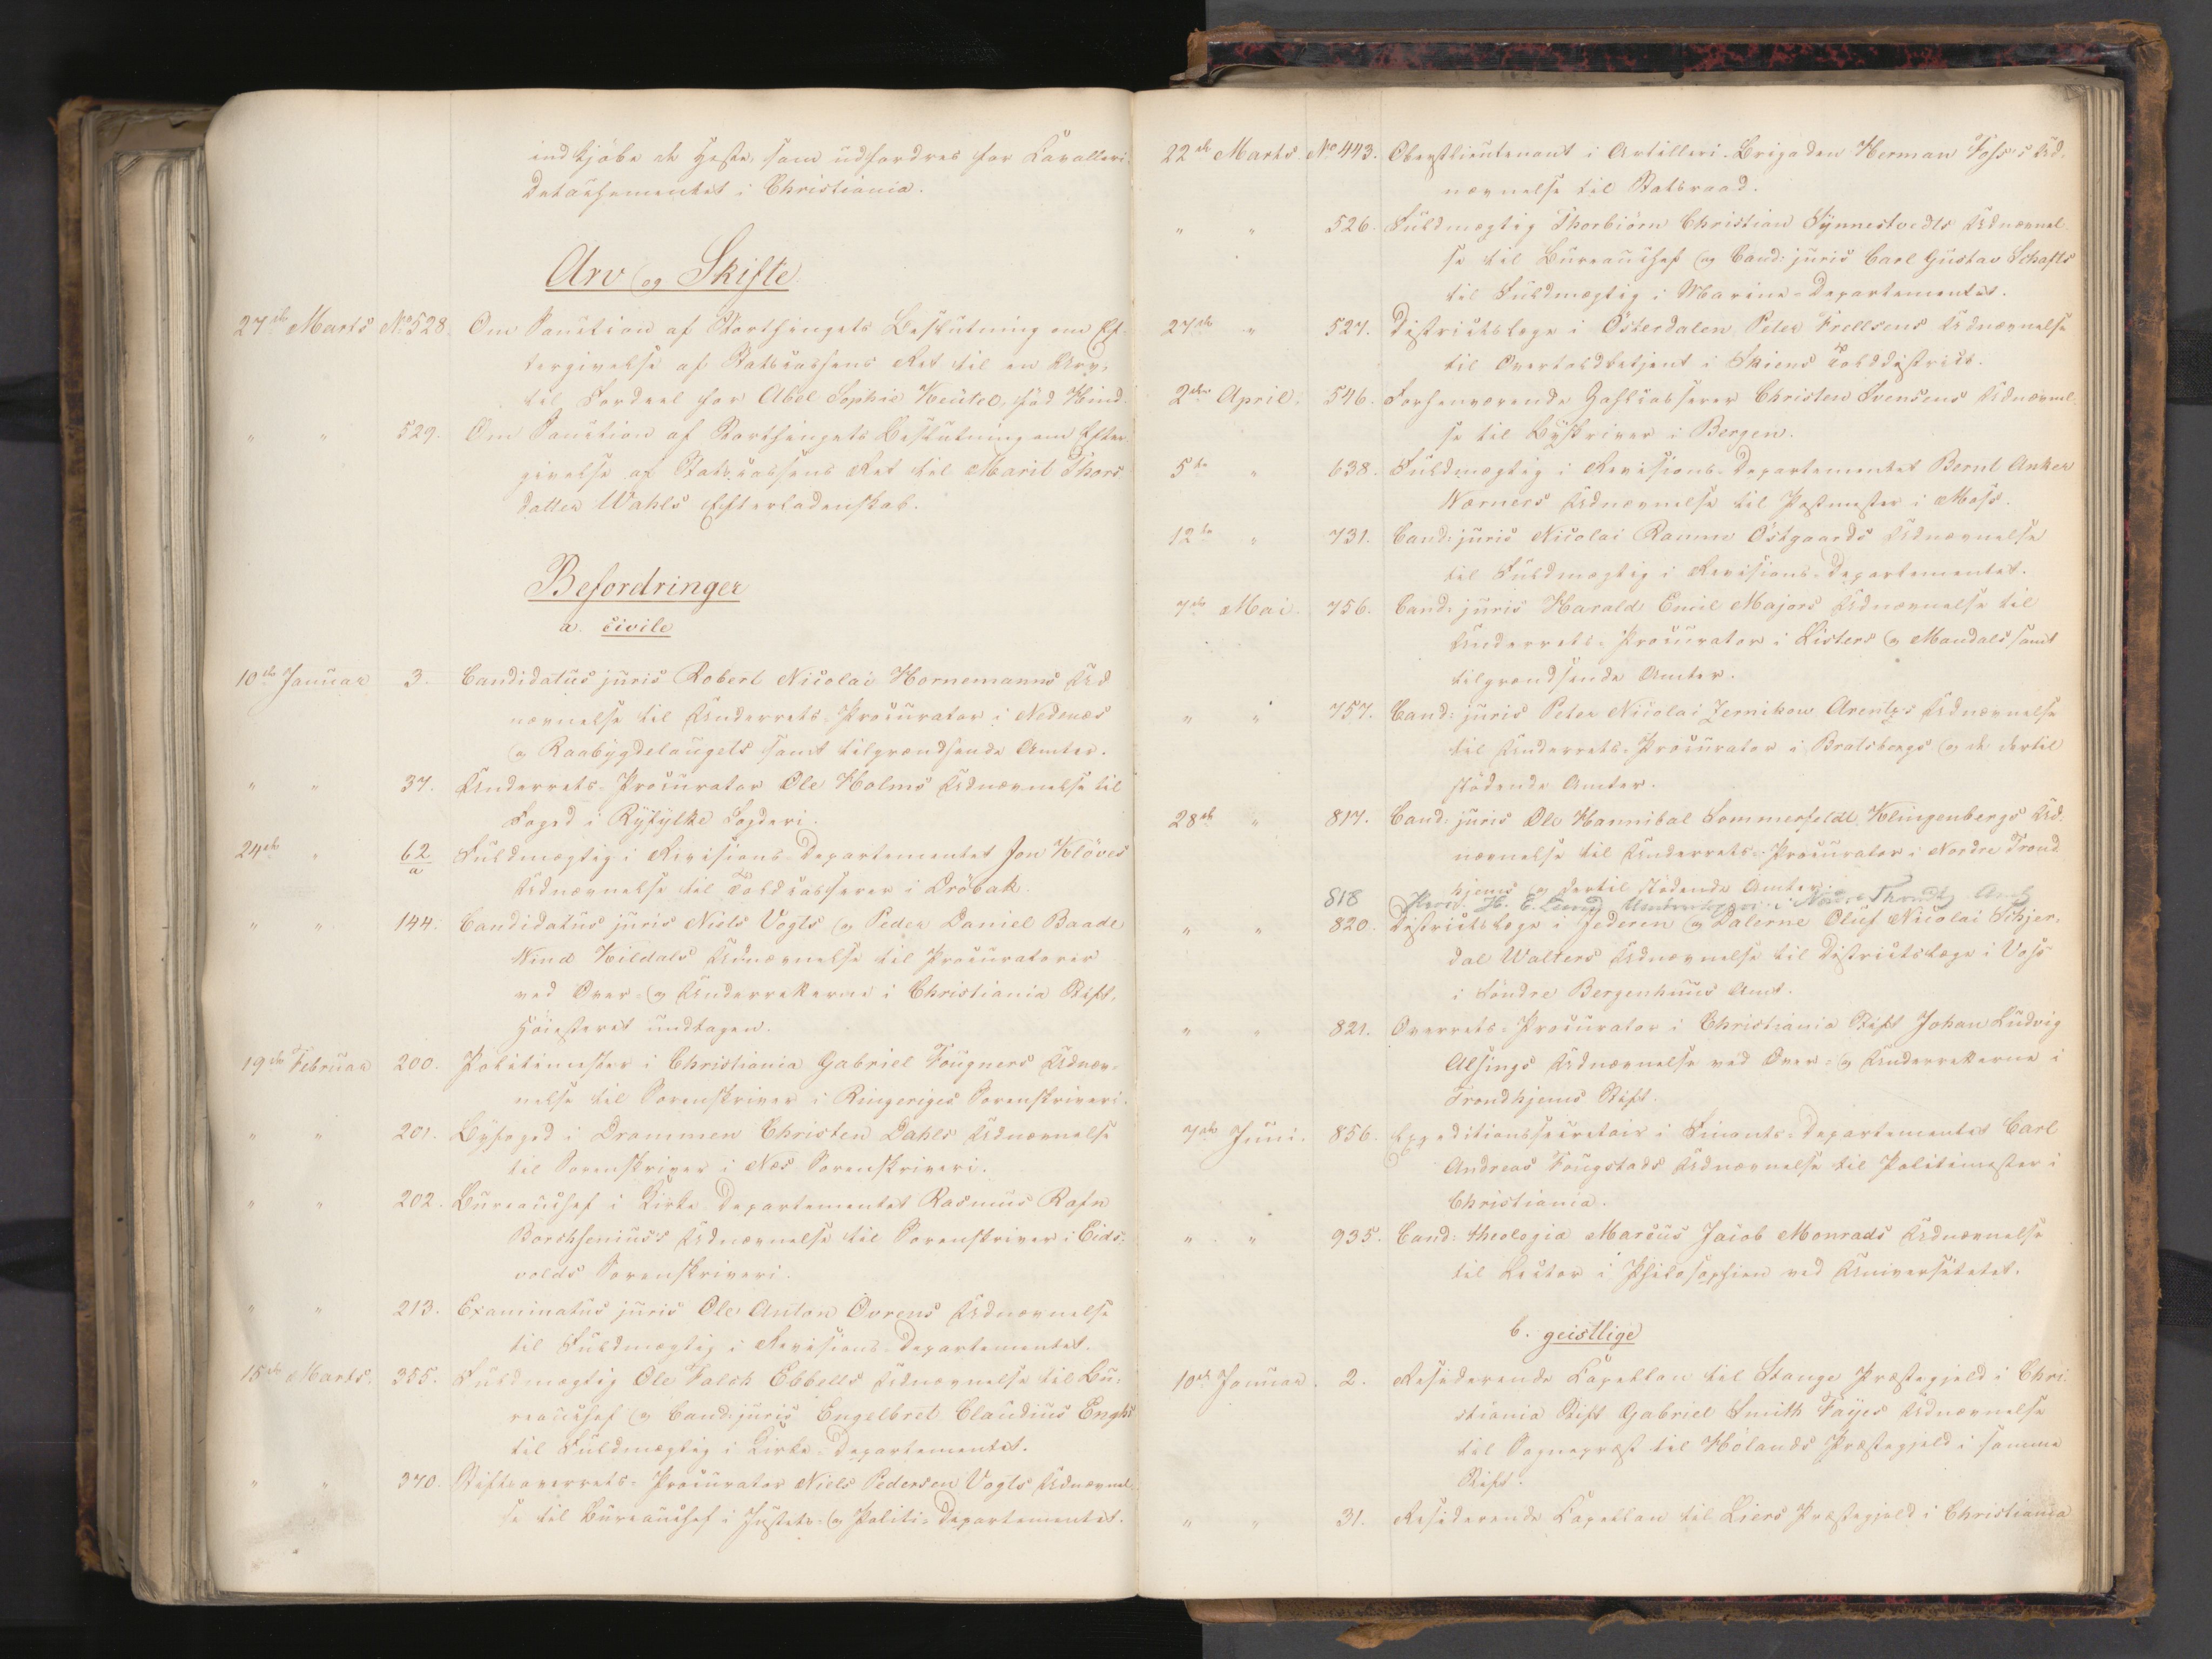 indkjøbe de Heste, som udfordres for Cavalleri-
Detachementet i Christiania.
Arv og Skifte
27de Marts No 528. Om Sanction af Storthingets Beslutning om Ef-
tergivelse af Statscassens Ret til en Arv,
til Fordeel for Abel Sophie Keutel, fød Hind.
" " 529. Om Sanction af Storthingets Beslutning om Efter-
givelse af Statscassens Ret til Marit Thors-
datter Wahls Efterladenskab.
Befordringer
a. civile
10de Januar 3. Candidatus juris Robert Nicolai Hornemanns Ud
nævnelse til Underrets-Procurator i Nedenæs
og Raabygdelaugets samt tilgrændsende Amter.
" " 37. Underrets-Procurator Ole Holms Udnævnelse til
Foged i Ryfylke Fogderi.
24de " 62/a Fuldmægtig i Revisions-Departementet Jon Kløves
Udnævnelse til Toldcasserer i Drøbak.
" " 144. Candidatus juris Niels Vogts og Peder Daniel Baade
Wind Kildals Udnævnelse til Procuratorer
ved Over- og Underretterne i Christiania Stift,
Høiesteret undtagen.
19de Februar 200. Politimester i Christiania Gabriel Fougners Udnæv-
nelse til Sorenskriver i Ringeriges Sorenskriveri.
" " 201. Byfoged i Drammen Christen Dahls Udnævnelse
til Sorenskriver i Næs Sorenskriveri.
" " 202. Bureauchef i Kirke-Departementet Rasmus Rafn
Borchsenius's Udnævnelse til Sorenskriver i Eids-
volds Sorenskriveri.
" " 213. Examinatus juris Ole Anton Øvrens Udnævnelse
til Fuldmægtig i Revisions-Departementet.
15de Marts. 355. Fuldmægtig Ole Falch Ebbells Udnævnelse til Bu-
reauchef og Cand: juris Engelbret Claudius Enghs
til Fuldmægtig i Kirke-Departementet.
" " 370. Stiftsoverrets-Procurator Niels Pedersen Vogts Udnævnel-
se til Bureauchef i Justits- og Politi-Departementet.
22de Marts No 443. Oberstlieutenant i Artilleri-Brigaden Herman Foss's Ud-
nævnelse til Statsraad.
" " 526. Fuldmægtig Thorbiørn Christian Synnestvedts Udnævnel-
se til Bureauchef og Cand: juris Carl Gustav Schafts
til Fuldmægtig i Marine-Departementet.
27de " 527. Districtslæge i Østerdalen Peter Frellsens Udnævnelse
til Overtoldbetjent i Skiens Tolddistrict.
2den April. 546. Forhenværende Hofcasserer Christen Svensens Udnævnel-
se til Byskriver i Bergen.
5te " 638. Fuldmægtig i Revisions-Departementet Bernt Anker
Værners Udnævnelse til Postmester i Moss.
12te " 731. Cand: juris Nicolai Ramm Østgaards Udnævnelse
til Fuldmægtig i Revisions-Departementet.
7de Mai. 756. Cand: juris Harald Emil Majors Udnævnelse til
Underrets-Procurator i Listers og Mandals samt
tilgrændsende Amter.
" " 757. Cand: juris Peter Nicolai Jernikow Arentzs Udnævnelse
til Underrets-Procurator i Bratsbergs og de dertil
stødende Amter.
28de " 817. Cand: juris Ole Hannibal Sommerfeldt Klingenbergs Ud-
nævnelse til Underrets-Procurator i Nordre Trond
hjems og dertil stødende Amter.
818 H. E. i Nordre Throndhj Amt
" " 820. Districtslæge i Jederen og Dalerne Oluf Nicolai Schjer-
dal Walters Udnævnelse til Districtslæge i Voss
i Søndre Bergenhuus Amt.
" " 821. Overrets-Procurator i Christiania Stift Johan Ludvig
Alsings Udnævnelse ved Over- og Underretterne i
Trondhjems Stift.
7de Juni. 856. Expeditionssecretair i Finants-Departementet Carl
Andreas Fougstads Udnævnelse til Politimester i
Christiania.
" " 935. Cand: theologiæ Marcus Jacob Monrads Udnævnelse
til Lector i Philosophien ved Universitetet.
b. geistlige
10de Januar. 2. Residerende Capellan til Stange Præstegjeld i Chri-
stiania Stift Gabriel Smith Fayes Udnævnelse
til Sognepræst til Hølands Præstegjeld i samme
Stift.
" " 31. Residerende Capellan til Liers Præstegjeld i Christiania